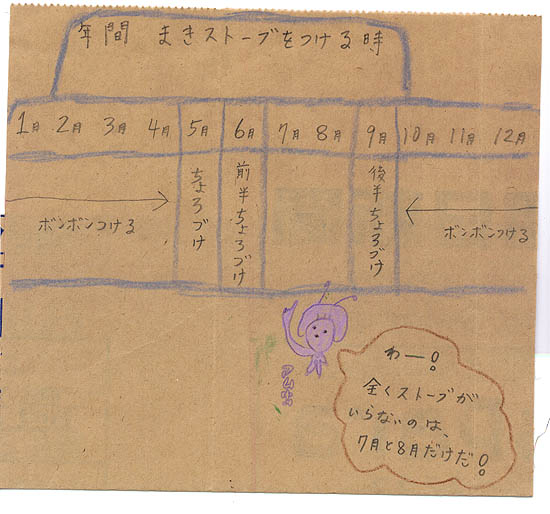 年間 まきストーブをつける時
1月 2月 3月 4月 5月 6月 7月 8月 9月 10月 11月 12月
ボンボンつける
ちょろづけ
前半ちょろづけ
後半ちょろづけ
ボンボンつける
わー!
全くストーブが
いらないのは、
7月と8月だけだ!